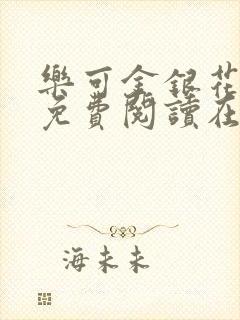 樂可金銀花
免費閱讀在
海未未